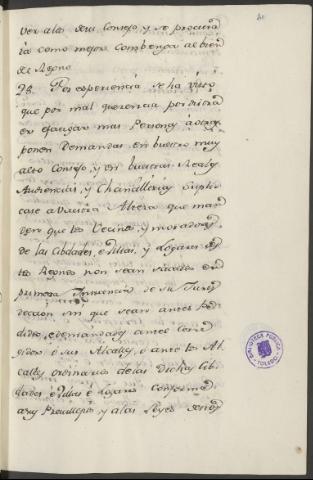 ver a los de su Consejo, y se procura
rá como mejor Combenga al bien
de Reyno.
28. Por experiencia se ha visto
que por mal querencia por dilatar
en fatigar mas Personas
ponen Demandas en buestro muy
alto Consejo, y en buestras Reales
Audiencias, y Chanillerias Supli
case a Vuestra Alteza que man
den que los Vecinos, y moradores
de las Cibdades, e Villas, y Logares de
tos Reynos non sean sitados en
primera Instancia de su Juris
diccion sin que sean antes pe
didos, e demandados ante Corre
gidores o sus Alcalles, o ante los Al
calles ordinarios de las dichas Cib
dades e Villas é Logares Conforme
a sus Previllejos y a las Leyes destos
BIBLIOTECA PÚBLICA
TOLEDO